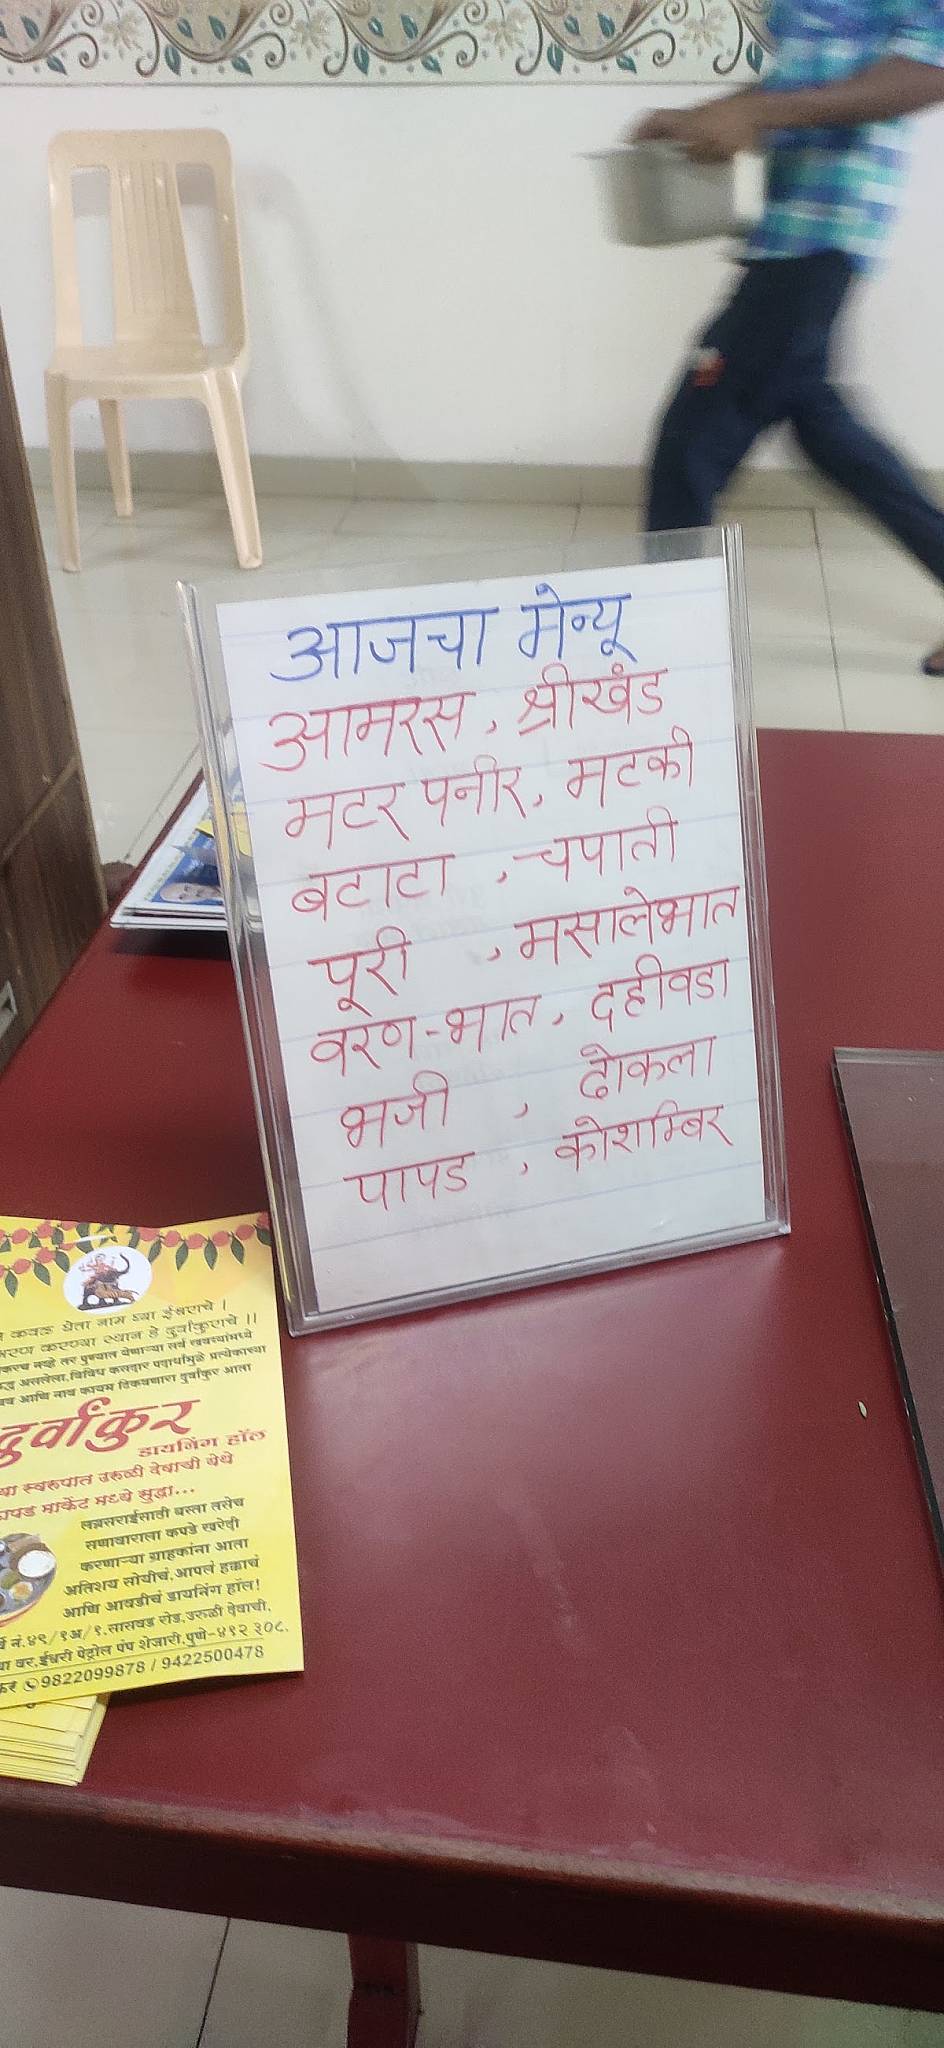 आजचा मेन्यू
आमरस, श्रीखंड
मटर पनीर, मटकी
बटाटा , चपाती
पूरी , मसालेभात
वरण-भात, दहीवडा
भजी , ढोकला
पापड , कोशम्बिर
कवळ घेता नाम घ्या ईश्वराचे ।
करण्या स्थान हे दुर्वांकुराचे ।।
नव्हे तर पुण्यात येणाऱ्या सर्व खवय्यांमध्ये
असलेला, विविध कसदार पदार्थांमुळे प्रत्येकाच्या
आणि नाव कायम टिकवणारा दुर्वांकुर आता
दुर्वांकुर
डायनिंग हॉल
स्वरुपात उरुळी देवाची येथे
मार्केट मध्ये सुद्धा...
लग्नसराईसाठी बस्ता तसेच
सणावाराला कपडे खरेदी
करणाऱ्या ग्राहकांना आता
अतिशय सोयीचं, आपलं हक्काचं
आणि आवडीचं डायनिंग हॉल!
नं.४९/१अ/१, सासवड रोड, उरुळी देवाची,
वर, ईश्वरी पेट्रोल पंप शेजारी, पुणे-४१२ ३०८.
9822099878 / 9422500478